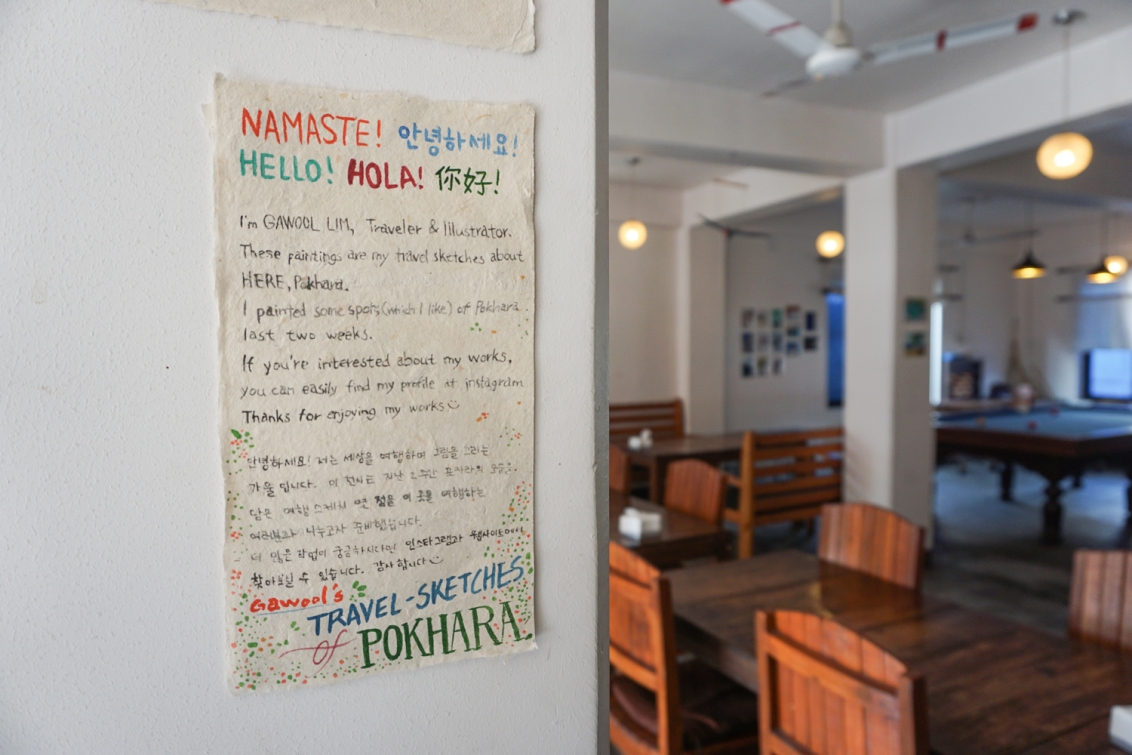 NAMASTE! 안녕하세요!
HELLO! HOLA! 你好!
I'm GAWOOL LIM, Traveler & Illustrator.
These paintings are my travel sketches about
HERE, Pokhara.
I painted some spots (which I like) of Pokhara
last two weeks.
If you're interested about my works,
you can easily find my profile at instagram
Thanks for enjoying my works
안녕하세요! 저는 세상을 여행하며 그림을 그리는
가울 입니다. 이 전시도 지난 2주간 포카라의 모습을
담은 여행 스케치 면 을 이 곳을 여행하는
여러분과 나누고자 준비했습니다.
더 많은 작업이 궁금하시다면 인스타그램과 웹사이트에서
찾아보실 수 있습니다. 감사합니다
Gawool's
TRAVEL-SKETCHES
of POKHARA